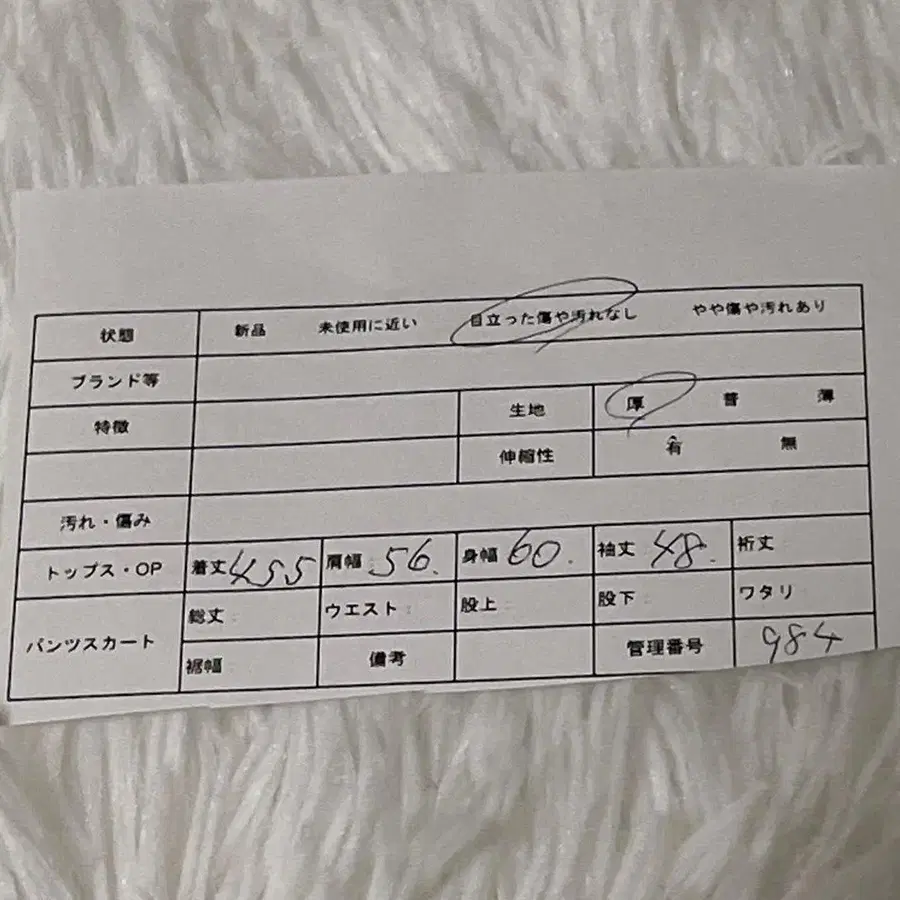 状態 新品 未使用に近い 目立った傷や汚れなし やや傷や汚れあり
ブランド等
特徴 生地 厚 普 薄
伸縮性 有 無
汚れ・傷み
トップス・OP 着丈 455 肩幅: 56. 身幅 60. 袖丈 48. 裄丈:
パンツスカート 総丈: ウエスト: 股上: 股下: ワタリ:
裾幅 備考 管理番号 984